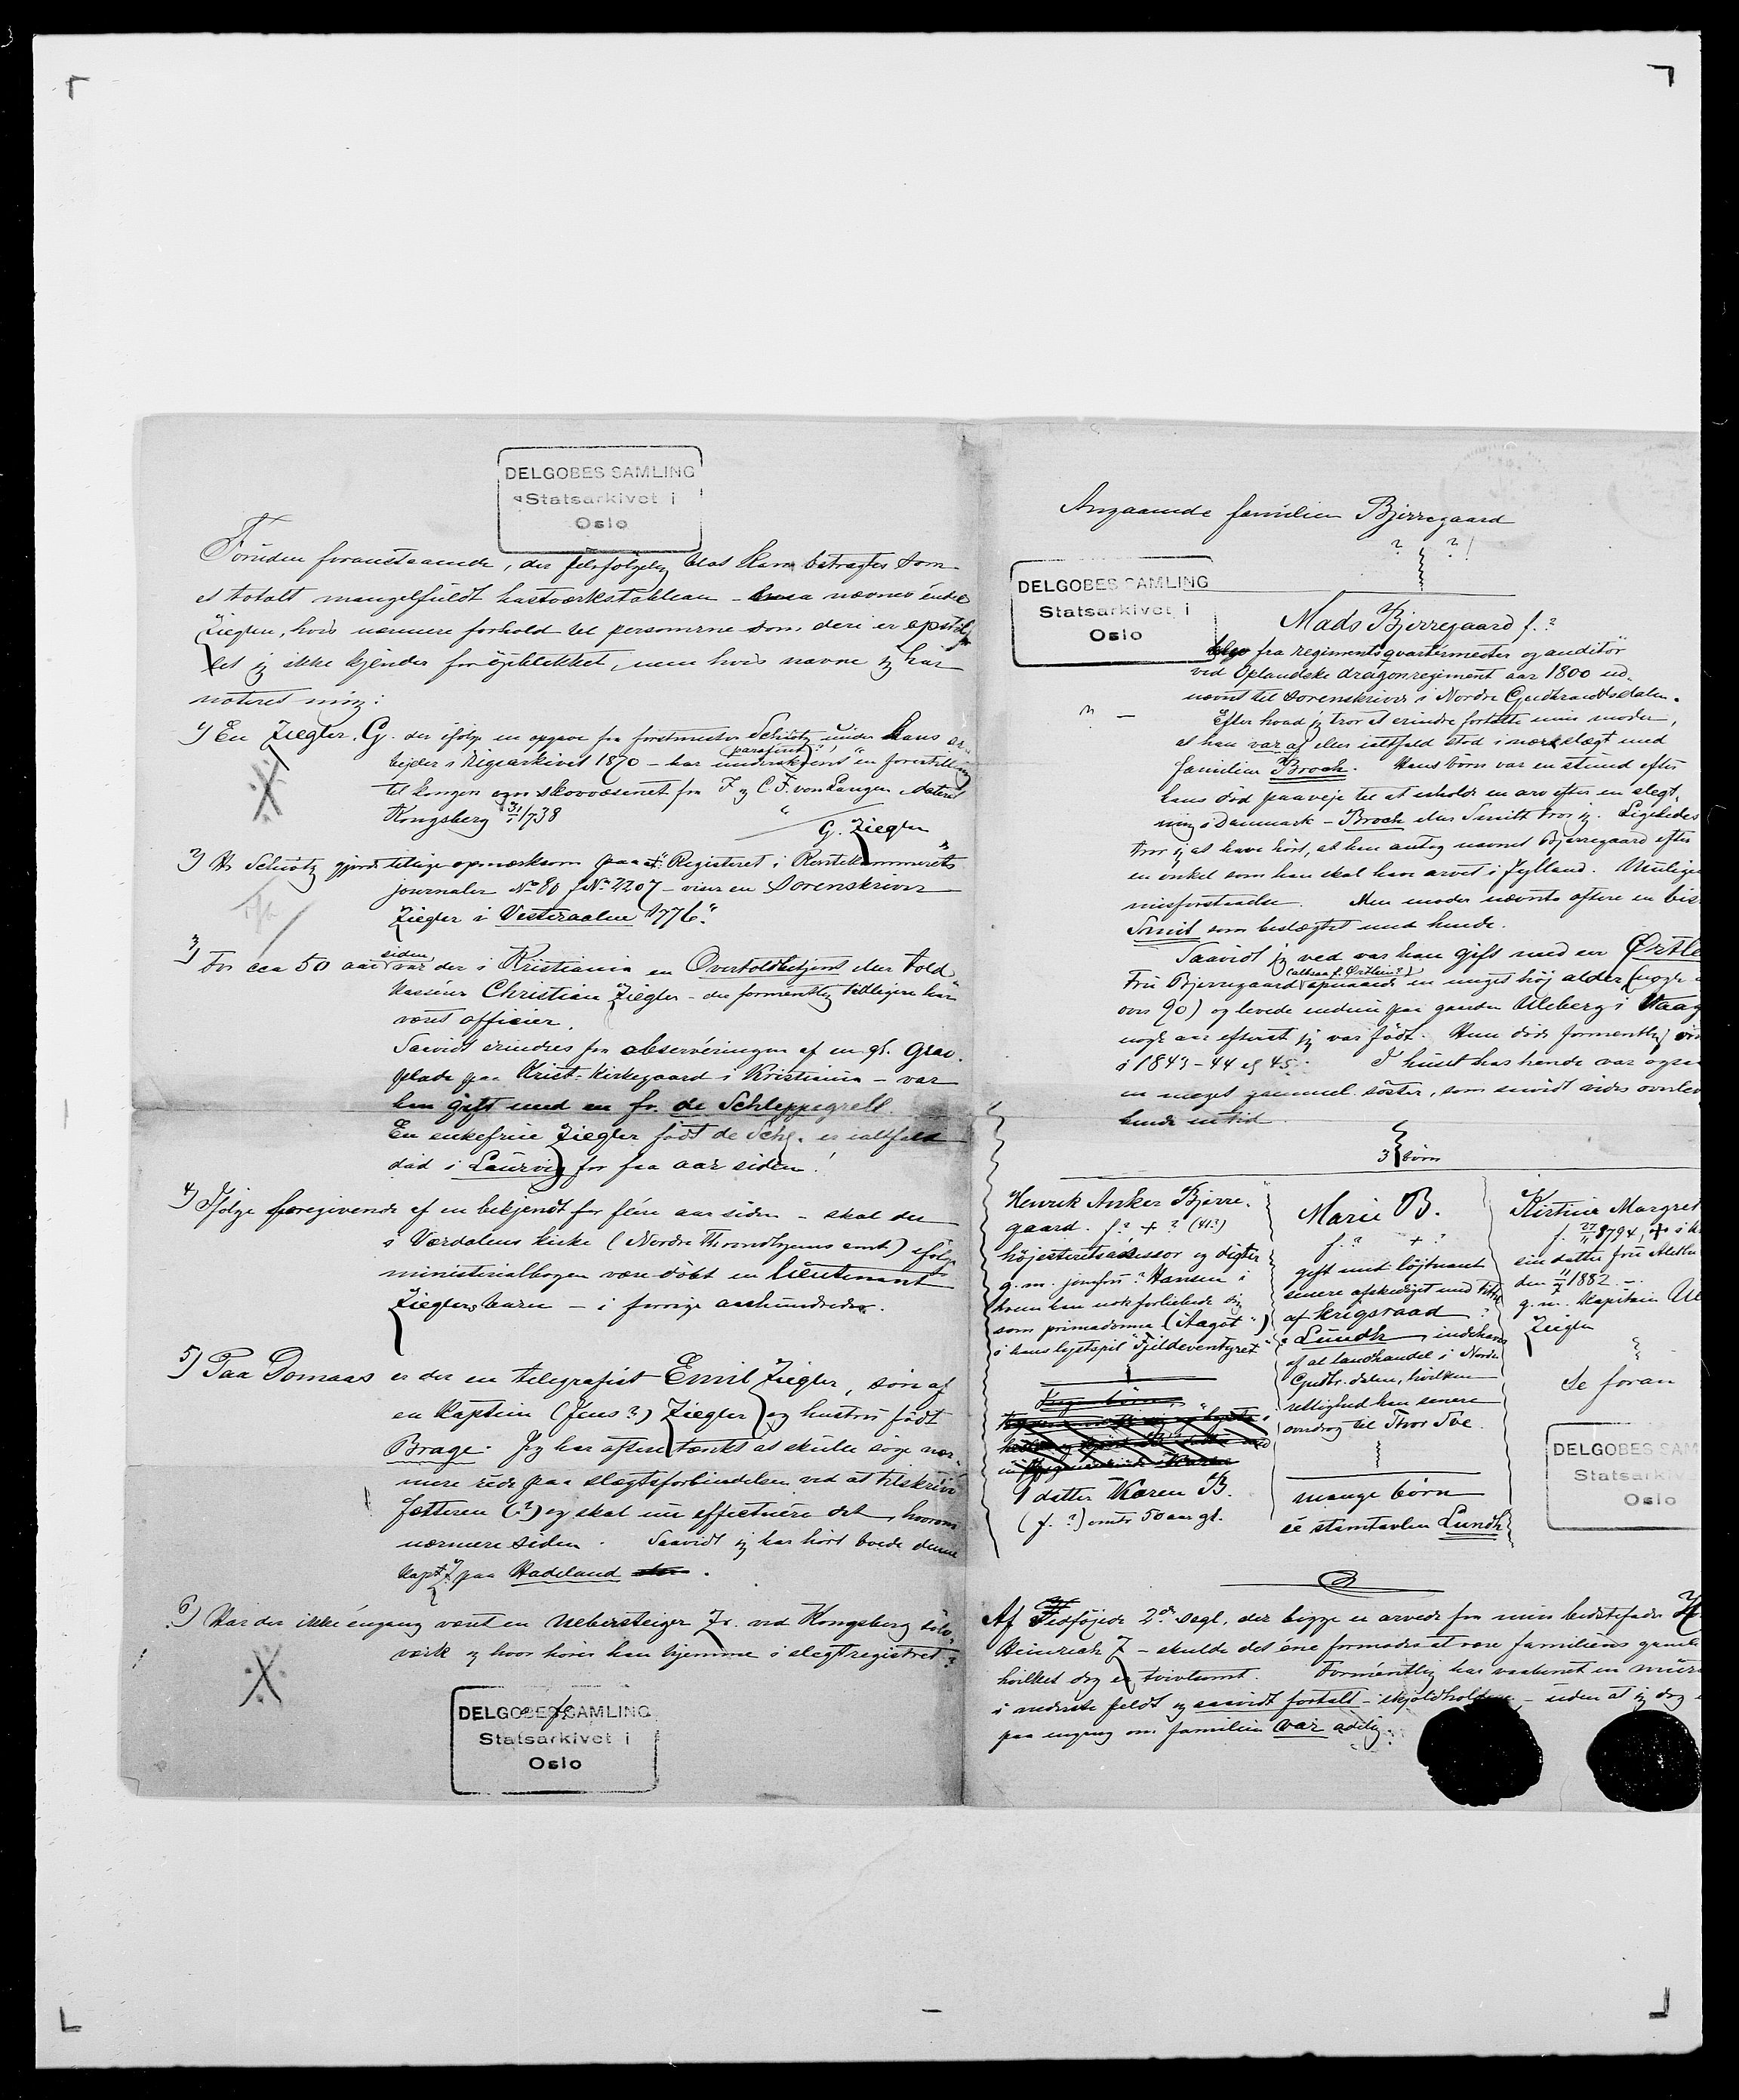 DELGOBES SAMLING
Statsarkivet i
Oslo
Foruden foranstaaende, der selvfølgelig blot kan betragtes som
et totalt mangelfuldt hastværkstableau - nævnes endel
Ziegler, hvis nærmere forhold til personerne som deri er opstil-
let jeg ikke kjender for øieblikket, men hvis navne jeg har
noteret mig:
1) En Ziegler, G. der ifølge en opgave fra forstmester Schiøtz under hans ar-
bejder i Rigsarkivet 1870 - har "paraferet", "underskrevet" en forestilling
til kongen om skovvæsenet fra J. og C. F. von Langen dateret
Kongsberg 31/1 1738
" G. Ziegler "
2) Hr Schiøtz gjorde tillige opmærksom paa at: "Registeret i Rentekammerets
journaler No 80 f No 2207 - viser en Sorenskriver
Ziegler i Vesteraalen 1776."
3) For cca 50 aar siden var der i Kristiania en Overtoldbetjent eller Told-
kasserer Christian Ziegler - der formentlig tidligere har
været officier.
Saavidt erindres fra observeringen af en gl. grav-
plade paa Krist. Kirkegaard i Kristiania - var
han gift med en fr. de Schleppegrell.
En enkefrue Ziegler født de Schl. er ialtfald
død i Laurvig for faa aar siden!
4) Ifølge foregivende af en bekjendt for flere aar siden - skal der
i Værdalens kirke (Nordre Throndhjems amt) ifølge
ministerialbogen være døbt en Lieutenant
Zieglers barn - i forrige aarhundrede.
5) Paa Domaas er der en telegrafist Emil Ziegler, søn af
en Kaptein (Jens?) Ziegler og hustru født
Brage. Jeg har oftere tænkt at skulle søge nær-
mere rede paa slægtsforbindelsen ved at tilskrive
fætteren (?) og skal nu effectuere det, hvorom
nærmere siden. Saavidt jeg har hørt boede denne
Kapt. Z. paa Hadeland.
6) Har der ikke engang været en Uebersteiger Zr. ved Kongsberg sølv-
værk og hvor hører han hjemme i slægtregistret?
DELGOBES SAMLING
Statsarkivet i
Oslo
Angaaende familien Bjerregaard
? ?!
DELGOBES SAMLING
Statsarkivet i
Oslo
Mads Bjerregaard f. ?
fra regimentsqvartermester og auditør
ved Oplandske dragonregiment aar 1800 ud-
nævnt til Sorenskriver i Nordre Gudbrandsdalen.
Efter hvad jeg tror at erindre fortalte min moder,
at han var af eller ialtfald stod i nær slægt med
familien Broch. Hans børn var en stund efter
hans død paaveje til at erholde en arv efter en slægt-
ning i Danmark - Broch eller Smith tror jeg. Ligeledes
tror jeg at have hørt, at han antog navnet Bjerregaard efter
en onkel som han skal have arvet i Jylland. Muligens
misforstaaelse. Men moder nævnte oftere en bis
Smit som beslægtet med hende.
Saavidt jeg ved var han gift med en Ørtle
Fru Bjerregaard (altsaa f. Ørtlein?) opnaaede en meget høj alder (nogle
over 90) og levede endnu paa gaarden Ulleberg i Vaag
nogle aar efterat jeg var født. Hun døde formentlig
i 1843 - 44 el 45. I huset hos hende var ogsaa
en meget gammel søster, som saavidt vides overlev
hende en tid.
3 børn
Henrik Anker Bjerre-
gaard. f. ? + ? (41?)
højesteretsassessor og digter
g. m. jomfru? Hansen i
hvem han nok forliebede sig
som primadonna ("Aagot")
i hans lystspil "Fjeldeventyret"
1 datter Karen B.
(f. ?) omtr 50 aar gl.
Marie B.
f. ? + ?
gift med løjtnant
senere afskediget med titel
af krigsraad
Lundh, indehaver
af et landhandel i Nordre
Gudbr. dalen, hvilken
rettighed han senere
overdrog til Thor Toe.
mange børn
se stamtavlen Lundh
Kirstine Margret
f. 27/11 1794, + i
sin datter frue
den 11/ 1882 -
g. m. Kaptein Ul
Ziegler
Se foran
DELGOBES SAM
Statsarkive
Oslo
Af Vedføjede 2de segl, der begge er arvede fra min bedstefader
Heinrich Z - skulde det ene formodes at være familiens gamle
hvilket dog er tvivlsomt. Formentlig har vaabenet en mur
i nederste feldt og saavidt fortalt - skjoldholdere - uden at jeg dog
paa engang om familien var adelig.